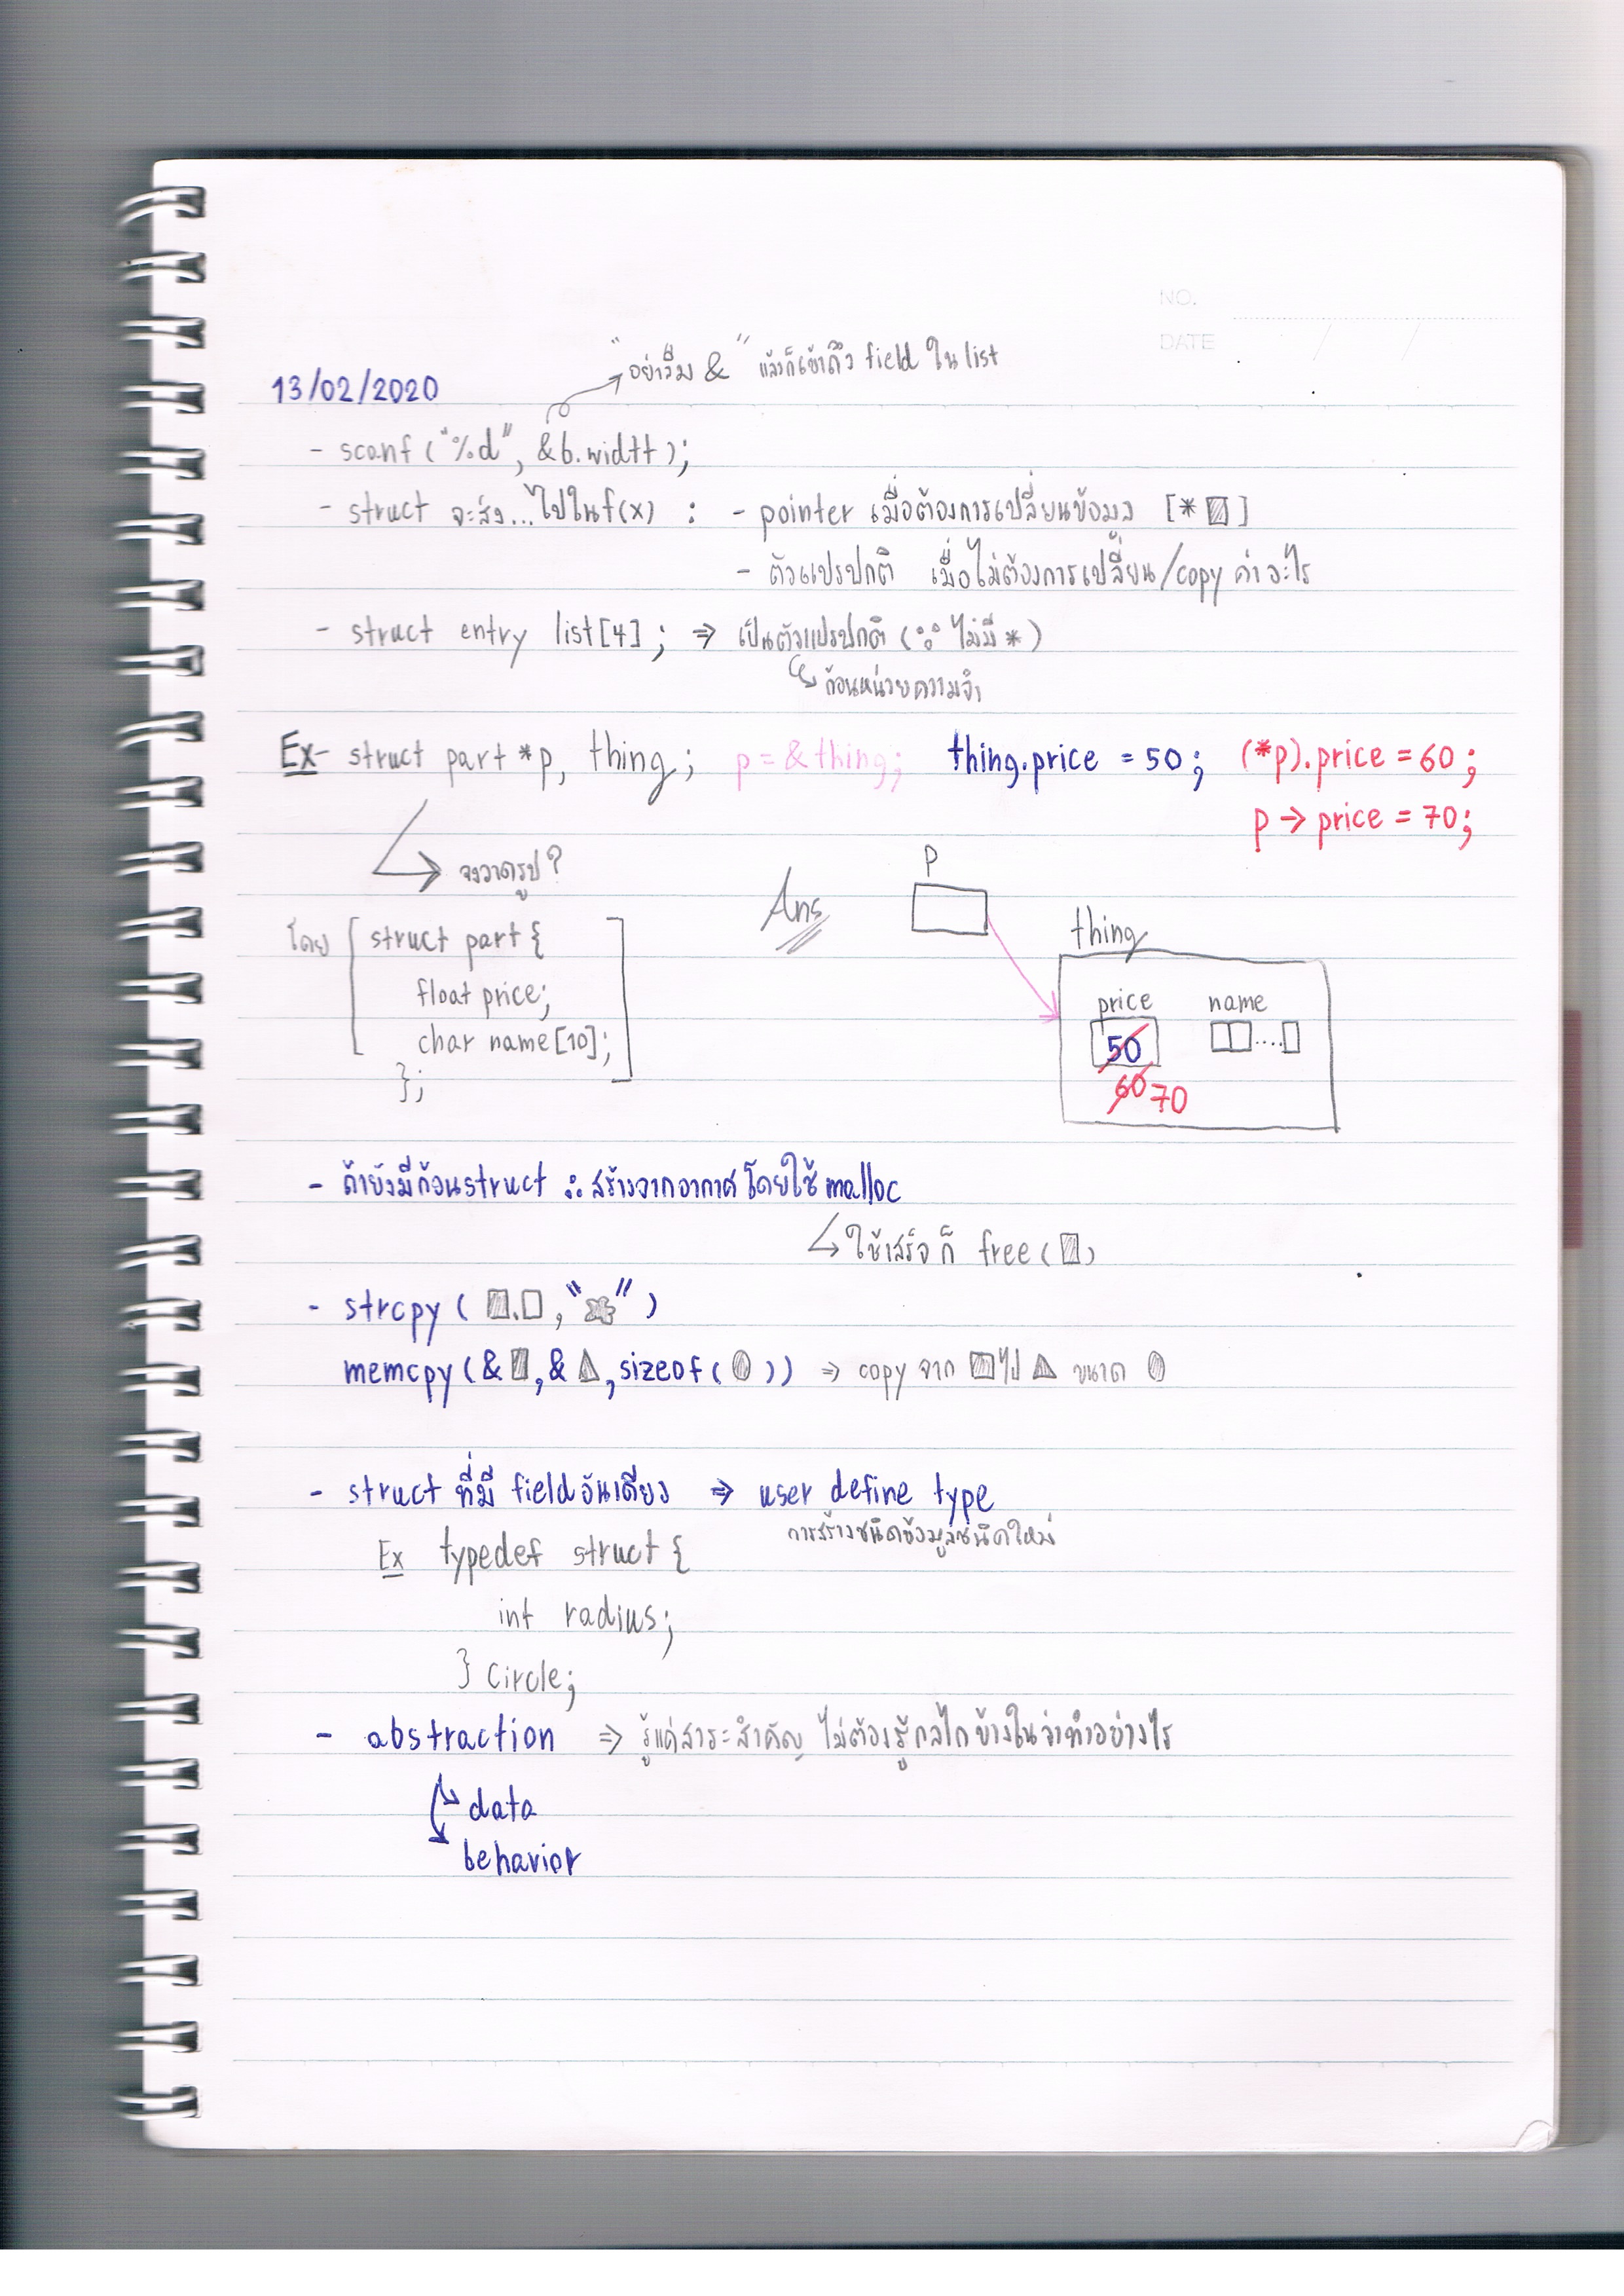 NO.
DATE / /
"อย่าลืม & " แล้วก็เข้าถึง field ใน list
13/02/2020
- scanf("%d", &b.widtt);
- struct จะส่ง...ไปในf(x) : - pointer เมื่อต้องการเปลี่ยนข้อมูล [* ]
- ตัวแปรปกติ เมื่อไม่ต้องการเปลี่ยน/copy ค่าอะไร
- struct entry list[4]; ⇒ เป็นตัวแปรปกติ (∵ ไม่มี *)
↳ ก้อนหน่วยความจำ
Ex- struct part *p, thing; p = & thing; thing.price = 50; (*p).price = 60;
p → price = 70;
จงวาดรูป?
Ans
p
thing
โดย struct part {
float price;
char name[10];
};
price name
50 ....
60 70
- ถ้ายังมีก้อนstruct ∴ สร้างจากอากาศ โดยใช้ malloc
↳ ใช้เสร็จก็ free( )
- strcpy ( . , " " )
memcpy (& , & , sizeof ( )) ⇒ copy จาก ไป ขนาด
- struct ที่มี field อันเดียว ⇒ user define type
การสร้างชนิดข้อมูลชนิดใหม่
Ex typedef struct {
int radius;
} Circle;
- abstraction ⇒ รู้แค่สาระสำคัญ ไม่ต้องรู้กลไกข้างในว่าทำอย่างไร
data
behavior